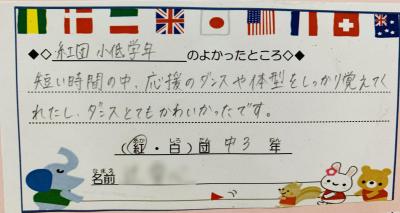 ◆◇紅団 小低学年 のよかったところ◇◆
短い時間の中、応援のダンスや体型をしっかり覚えてく
れたし、ダンスとてもかわいかったです。
(紅・白)団 中3 年
名前